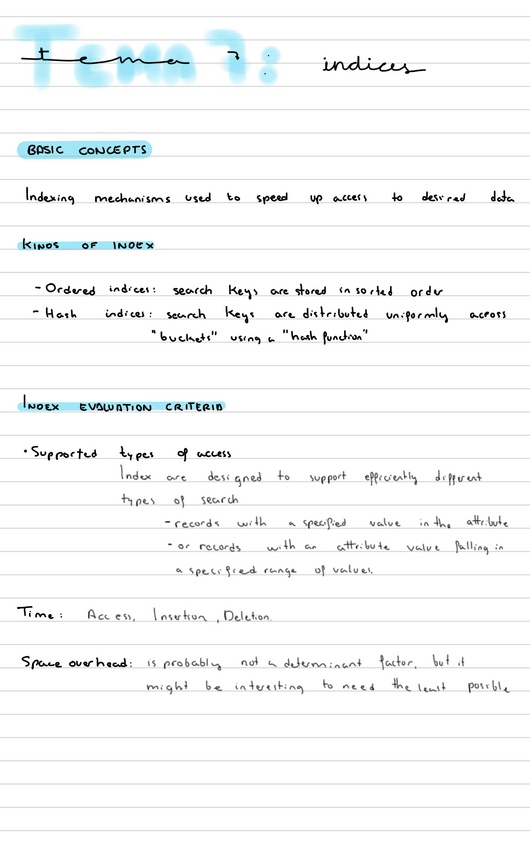 Tema 7: indices
BASIC CONCEPTS
Indexing mechanisms used to speed up access to desired data
KINDS OF INDEX
- Ordered indices: search keys are stored in sorted order
- Hash indices: search keys are distributed uniformly across
"buckets" using a "hash function"
INDEX EVALUATION CRITERIA
• Supported types of access
Index are designed to support efficiently different
types of search
- records with a specified value in the attribute
- or records with an attribute value falling in
a specified range of values.
Time: Access, Insertion, Deletion.
Space overhead: is probably not a determinant factor, but it
might be interesting to need the least possible